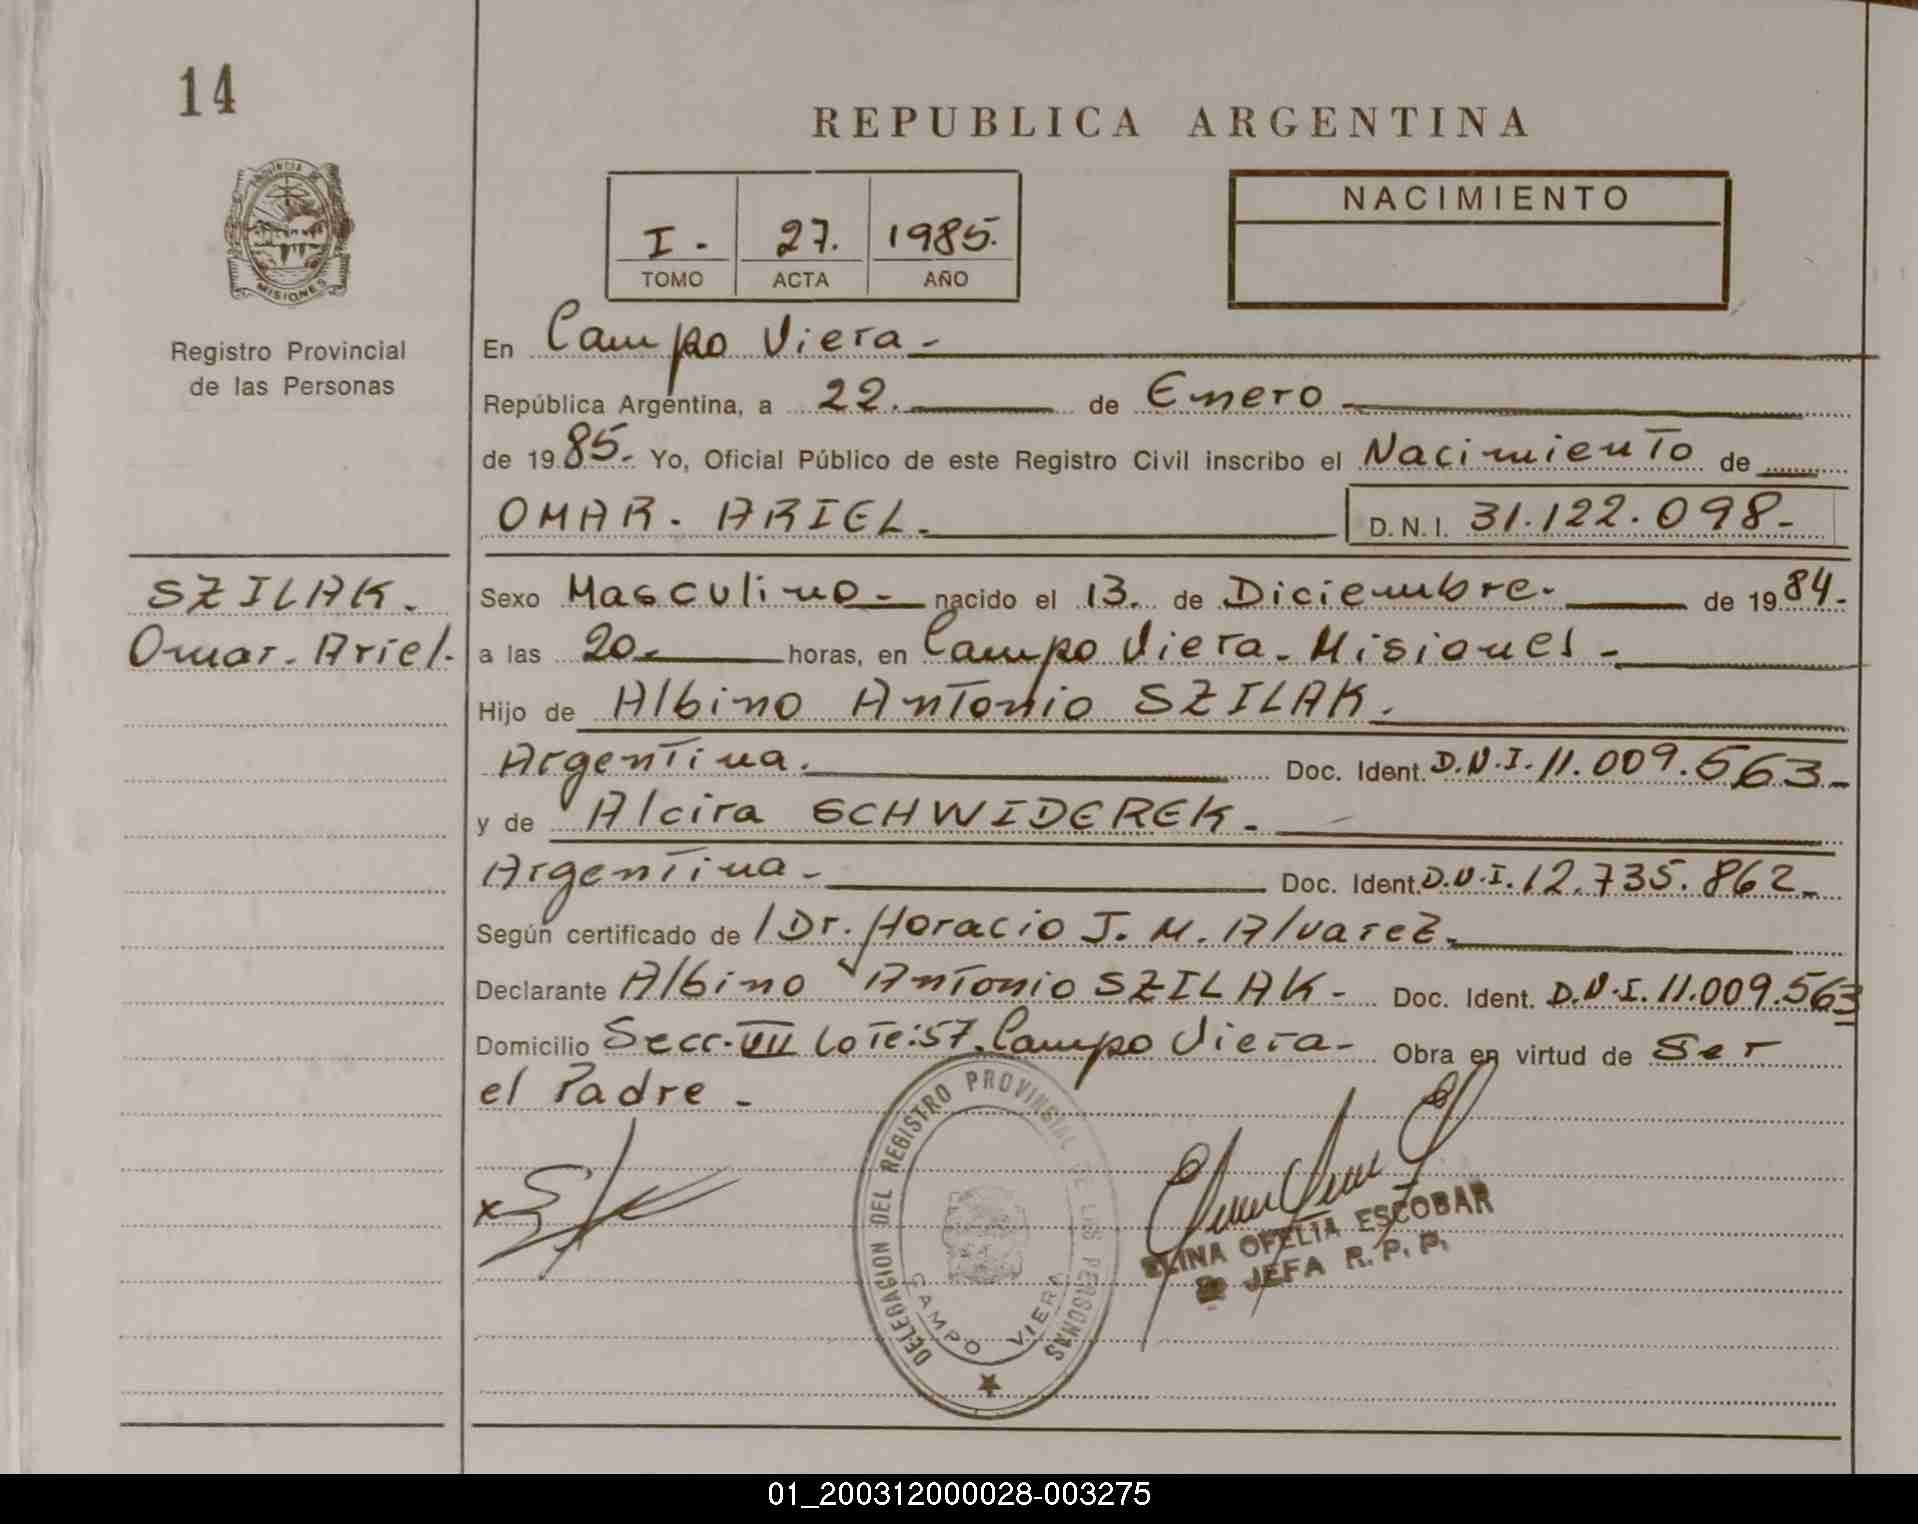 14
REPUBLICA ARGENTINA
NACIMIENTO
I. 27. 1985.
TOMO ACTA AÑO
PROVINCIA DE
MISIONES
Registro Provincial
de las Personas
En Campo Viera-
República Argentina, a 22. de Enero
de 1985- Yo, Oficial Público de este Registro Civil inscribo el Nacimiento de
OMAR. ARIEL. D.N.I. 31.122.098-
SZILAK.
Omar. Ariel.
Sexo Masculino- nacido el 13. de Diciembre. de 1984-
a las 20. horas, en Campo Viera. Misiones-
Hijo de Albino Antonio SZILAK.
Argentina. Doc. Ident. D.N.I. 11.009.563-
y de Alcira SCHWIDEREK.
Argentina- Doc. Ident. D.N.I. 12.735.862-
Según certificado de / Dr. Horacio J. M. Alvarez.
Declarante Albino Antonio SZILAK- Doc. Ident. D.N.I. 11.009.563
Domicilio Secc. VII Lote: 57. Campo Viera- Obra en virtud de Ser
el Padre-
DELEGACION DEL REGISTRO PROVINCIAL DE LAS PERSONAS
CAMPO VIERA
ELINA OFELIA ESCOBAR
JEFA R.P.P.
01_200312000028-003275